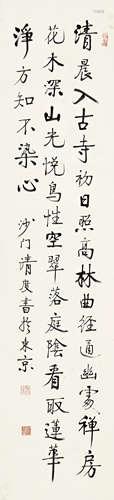 清晨入古寺初日照高林曲径通幽處禅房
花木深山光悦鳥性空翠落庭陰看取蓮華
淨方知不染心
沙门清度書於東京